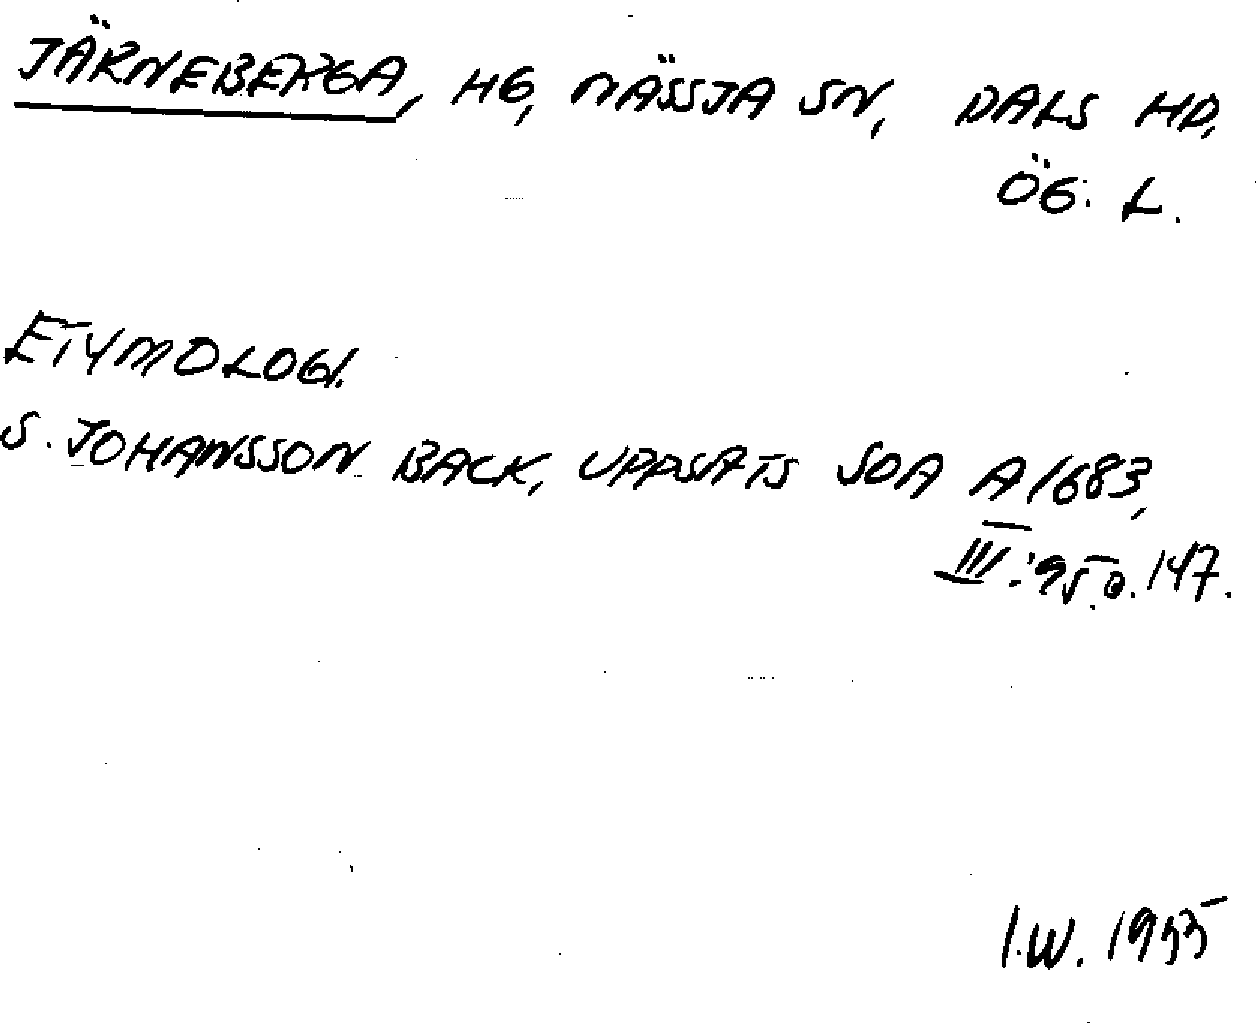 JÄRNEBERGA, HG, NÄSSJA SN, DALS HD,
ÖG. L.
ETYMOLOGI.
S. JOHANSSON BACK, UPPSATS SOA A 1683,
III: 95 o. 147.
I.W. 1955